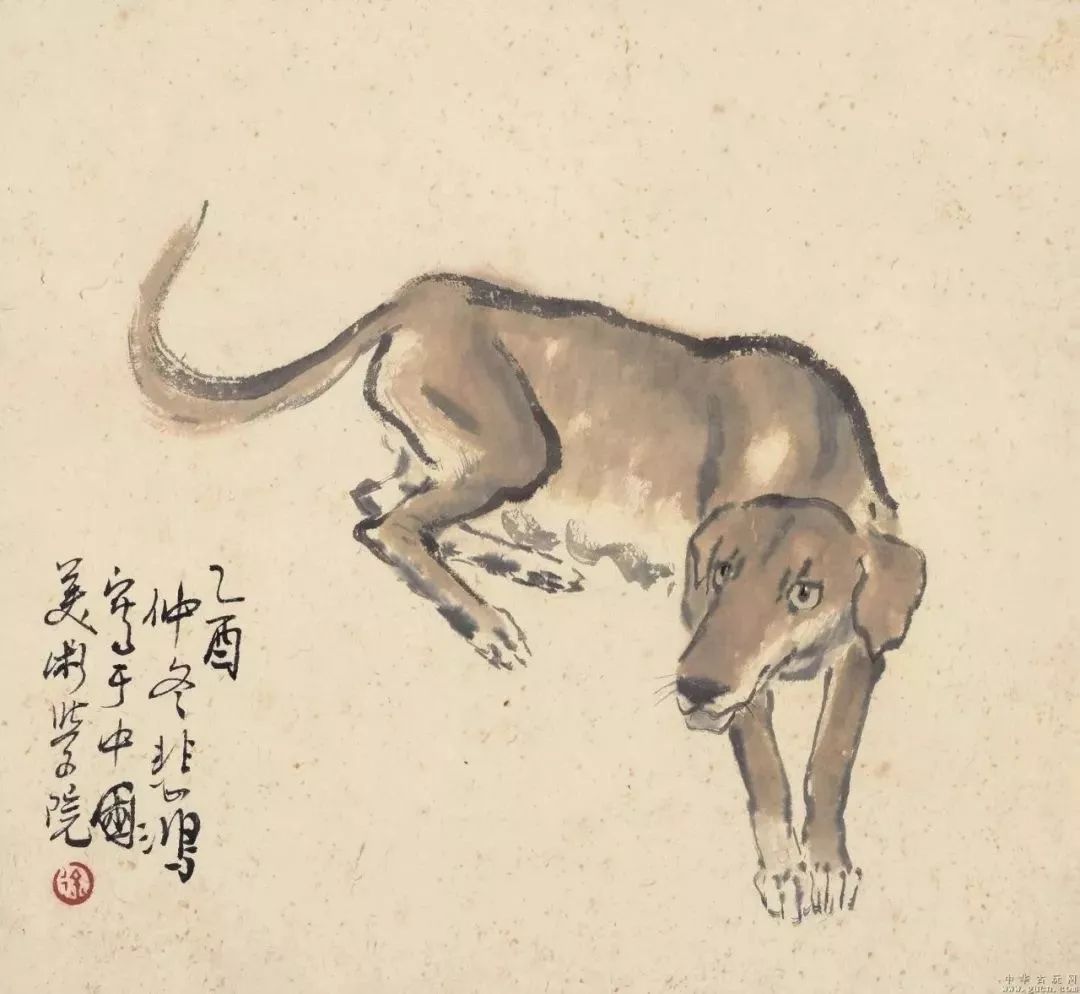 乙酉
仲冬悲鴻
寫于中國
美術學院
徐
中华古玩网
www.gucn.com